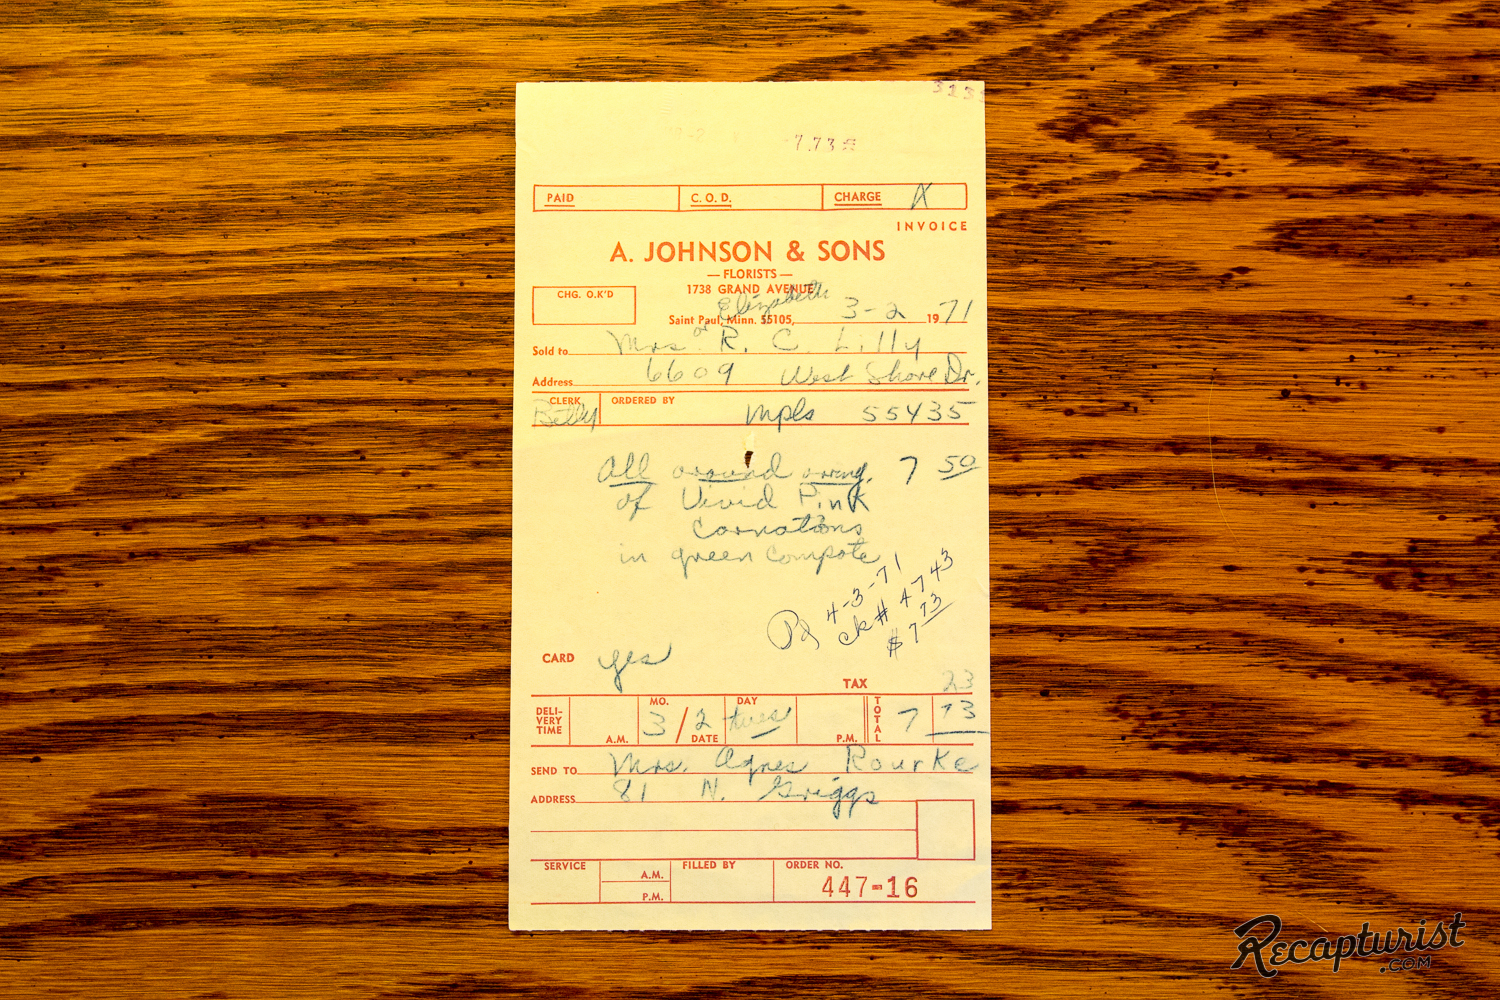 313
7.73
PAID C. O. D. CHARGE X
INVOICE
A. JOHNSON & SONS
— FLORISTS —
CHG. O.K'D
1738 GRAND AVENUE
Elizabeth
Saint Paul, Minn. 55105, 3-2 1971
Sold to Mrs or R. C. Lilly
Address 6609 West Shore Dr.
CLERK Betty ORDERED BY Mpls 55435
All around 7 50
of Vivid Pink
Carnations
in green compote
Pd 4-3-71
ck# 4743
$7 73
CARD yes
TAX 23
DELIVERY TIME A.M. MO. 3/2 DATE DAY tues P.M. TOTAL 7 73
SEND TO Mrs. Agnes Rourke
ADDRESS 81 N. Griggs
SERVICE A.M. P.M. FILLED BY ORDER NO.
447-16
Recapturist
.COM